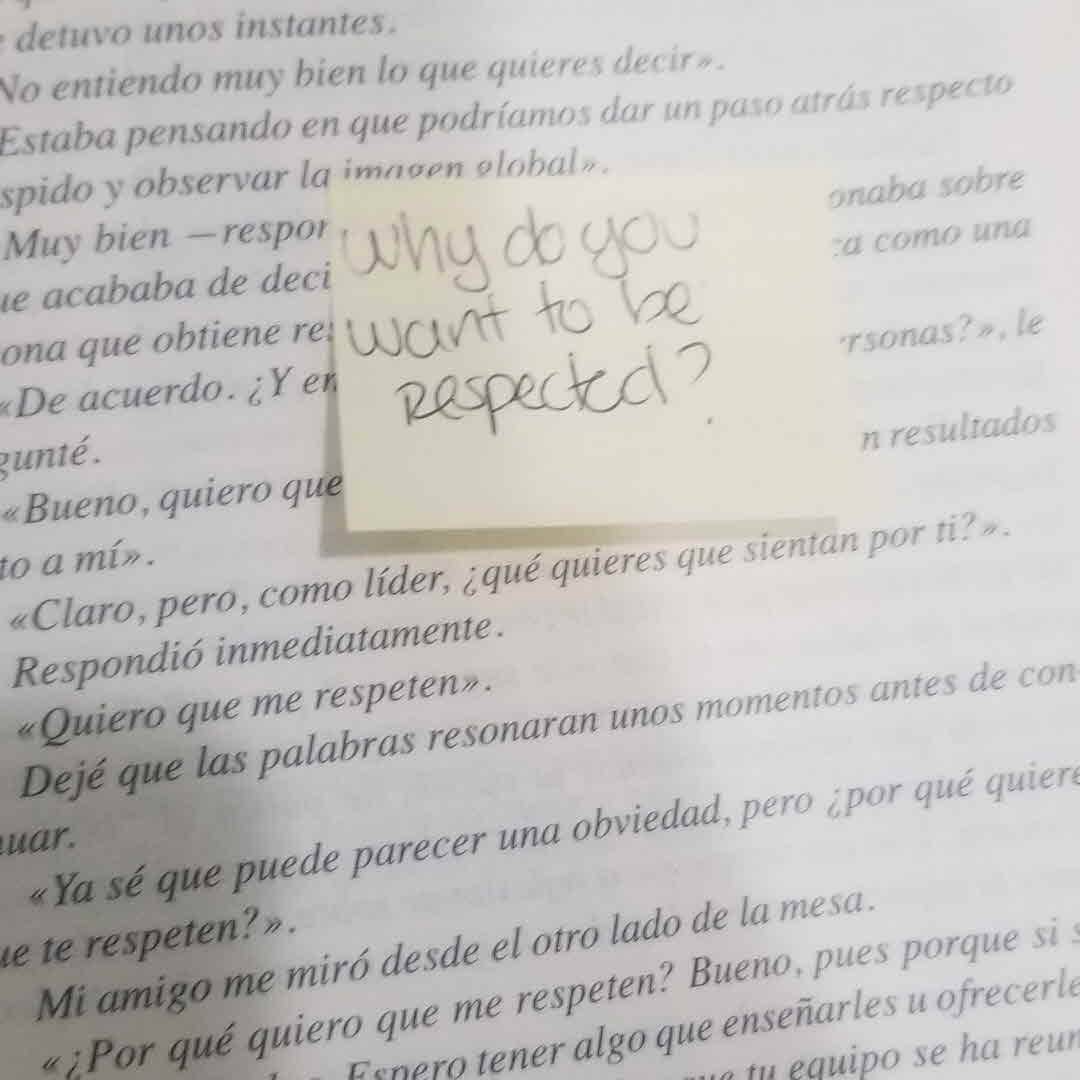 detuvo unos instantes.
No entiendo muy bien lo que quieres decir».
Estaba pensando en que podríamos dar un paso atrás respecto
spido y observar la imagen global».
Muy bien —respon
onaba sobre
ue acababa de deci
a como una
ona que obtiene re
«De acuerdo. ¿Y en
rsonas?», le
gunté.
«Bueno, quiero que
n resultados
to a mí».
Why do you
want to be
Respected?
«Claro, pero, como líder, ¿qué quieres que sientan por ti?».
Respondió inmediatamente.
«Quiero que me respeten».
Dejé que las palabras resonaran unos momentos antes de con
uar.
«Ya sé que puede parecer una obviedad, pero ¿por qué quiere
ue te respeten?».
Mi amigo me miró desde el otro lado de la mesa.
«¿Por qué quiero que me respeten? Bueno, pues porque si s
Espero tener algo que enseñarles u ofrecerle
tu equipo se ha reun